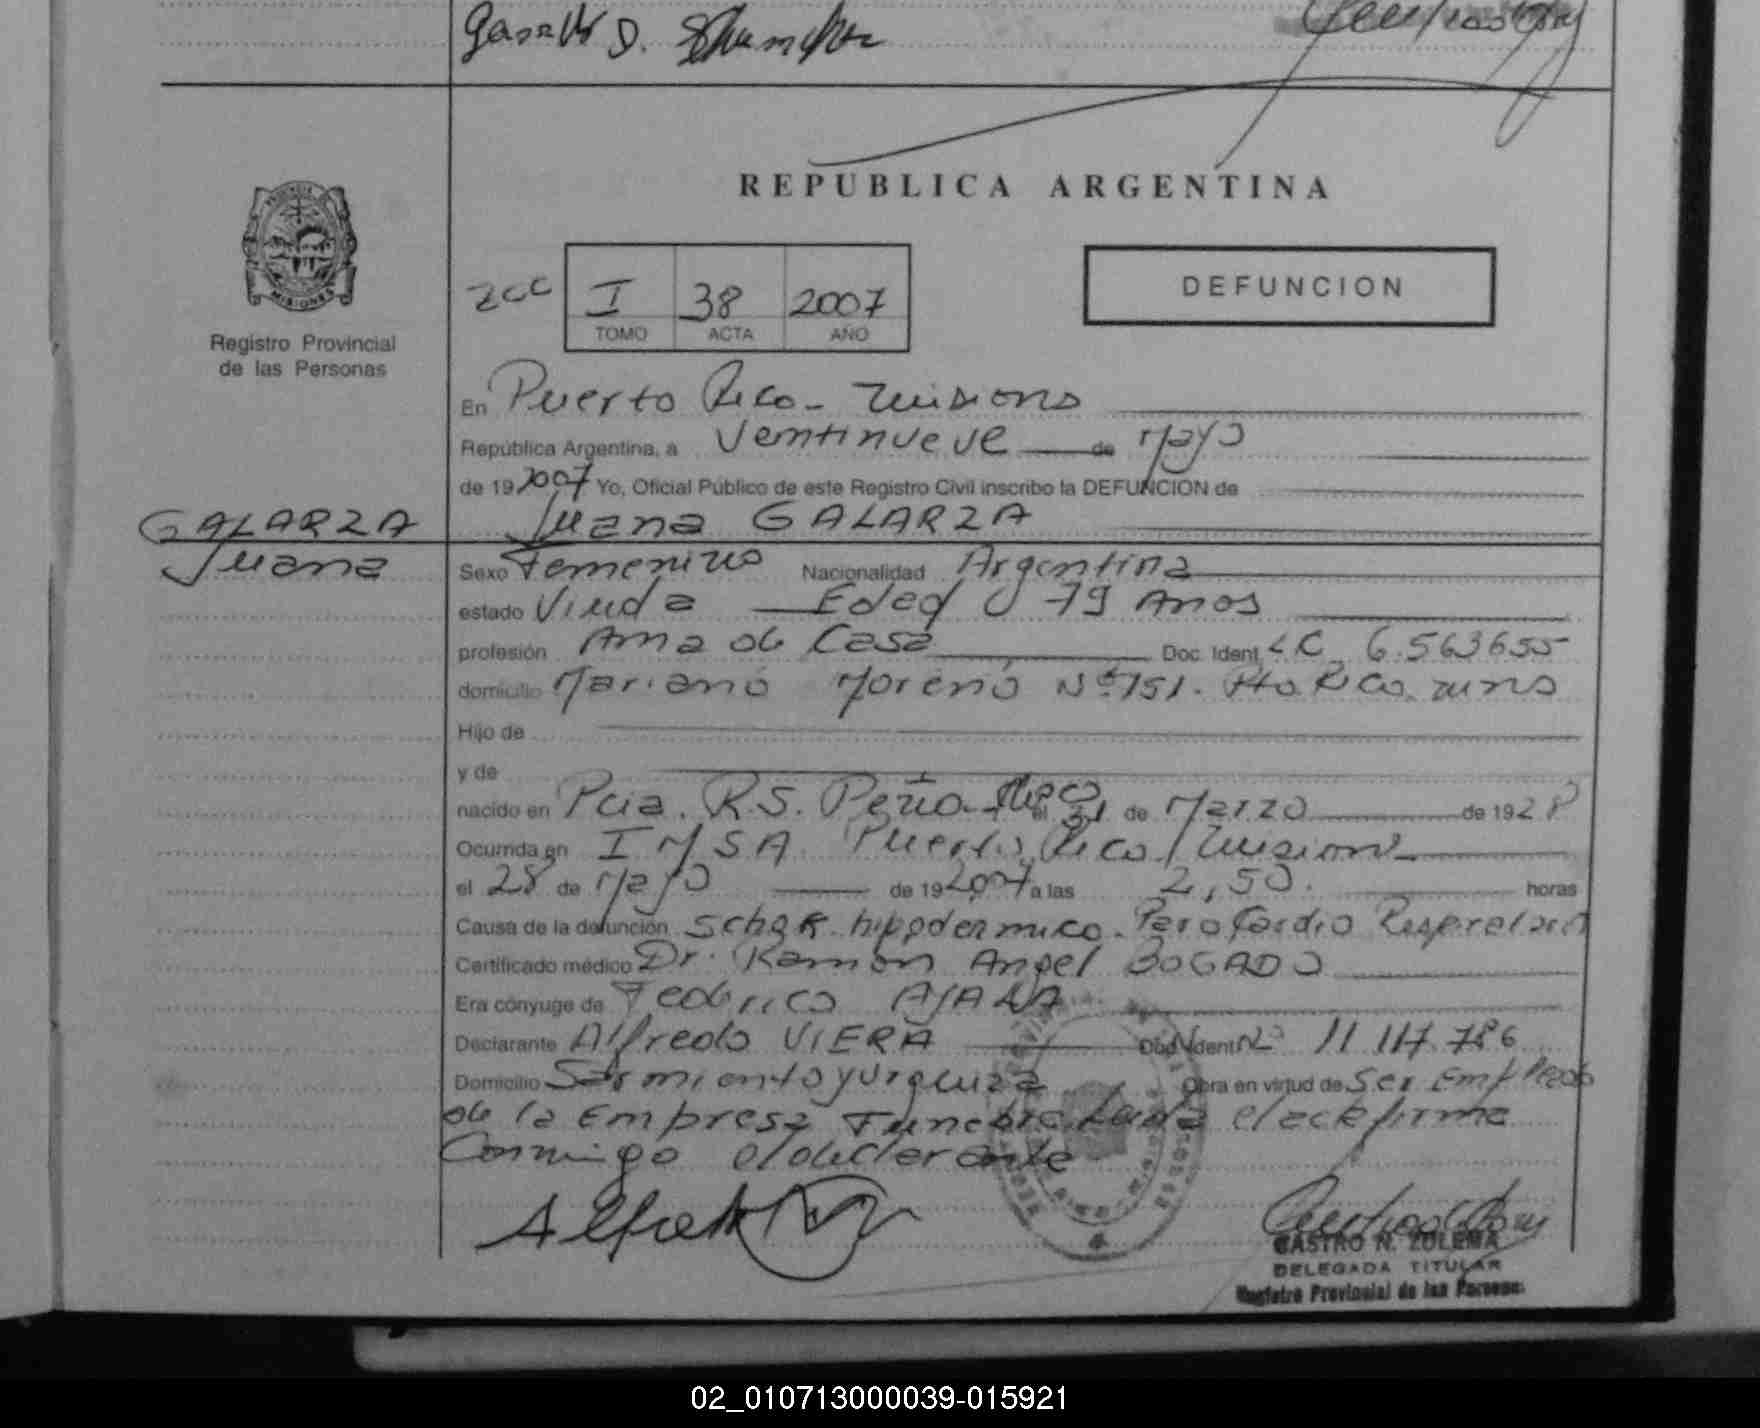 REPUBLICA ARGENTINA
PROVINCIA
MISIONES
Registro Provincial
de las Personas
I 38 2007
TOMO ACTA AÑO
DEFUNCION
En Puerto Rico - Misiones
República Argentina, a Ventinueve de Mayo
de 19 2007 Yo, Oficial Público de este Registro Civil inscribo la DEFUNCION de
GALARZA
Juana
Juana GALARZA
Sexo Femenino Nacionalidad Argentina
estado Viuda Edad 79 Años
profesión Ama de Casa Doc. Ident. LC 6.563655
domicilio Mariano Moreno Nº 751. Pto Rico. Mnes
Hijo de
y de
nacido en Pcia. R.S. Peña - Chaco el 31 de Marzo de 1928
Ocurrida en IMSA Puerto Rico / Misiones
el 28 de Mayo de 19 2007 a las 2,50. horas
Causa de la defunción Schok hipodermico. Paro Cardio Respiratorio
Certificado médico Dr. Ramón Angel BOGADO
Era cónyuge de Federico AYALA
Declarante Alfredo VIERA Doc. Ident Nº 11.117.786
Domicilio Sarmiento y Urquiza Obra en virtud de Ser Empleado
de la Empresa Funebre. Leida el acta firma
Conmigo el declarante
CASTRO N. ZULEMA
DELEGADA TITULAR
Registro Provincial de las Personas
02_010713000039-015921